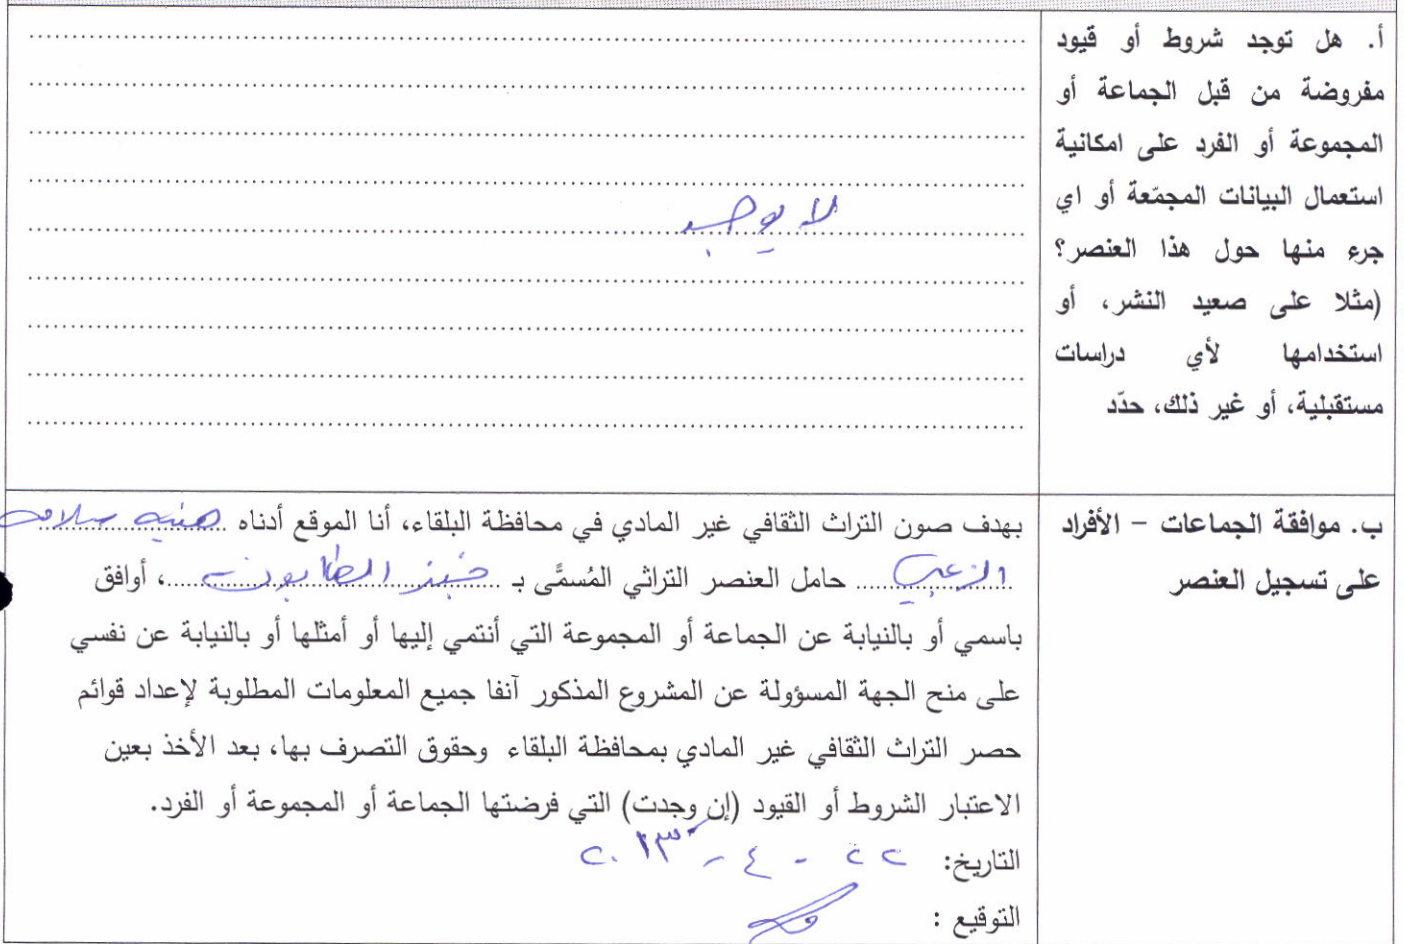 أ. هل توجد شروط أو قيود
مفروضة من قبل الجماعة أو
المجموعة أو الفرد على امكانية
استعمال البيانات المجمّعة أو اي
جرء منها حول هذا العنصر؟
(مثلا على صعيد النشر، أو
استخدامها لأي دراسات
مستقبلية، أو غير ذلك، حدّد
لا يوجد
ب. موافقة الجماعات – الأفراد
على تسجيل العنصر
بهدف صون التراث الثقافي غير المادي في محافظة البلقاء، أنا الموقع أدناه هنيه سلامه
الزعبي حامل العنصر التراثي المُسمَّى بـ خبز الطابون، أوافق
باسمي أو بالنيابة عن الجماعة أو المجموعة التي أنتمي إليها أو أمثلها أو بالنيابة عن نفسي
على منح الجهة المسؤولة عن المشروع المذكور آنفا جميع المعلومات المطلوبة لإعداد قوائم
حصر التراث الثقافي غير المادي بمحافظة البلقاء وحقوق التصرف بها، بعد الأخذ بعين
الاعتبار الشروط أو القيود (إن وجدت) التي فرضتها الجماعة أو المجموعة أو الفرد.
التاريخ: - ٤ - ٢٠١٣
التوقيع :